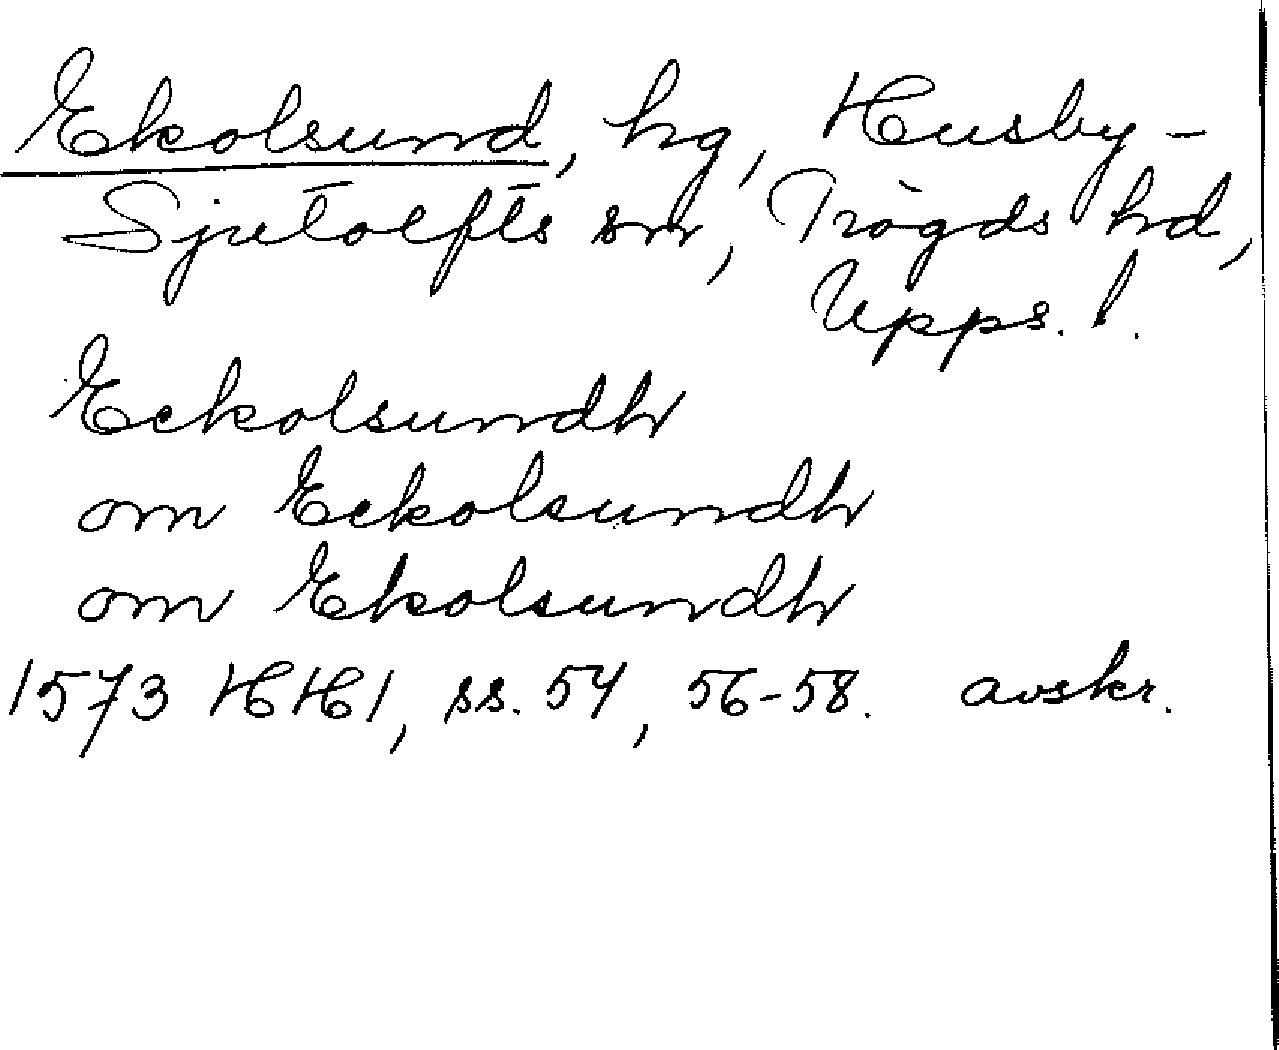 Ekolsund, hg, Husby-
Sjutolfts sn, Trögds hd,
Upps. l.
Eckolsundh
om Eckolsundh
om Ekolsundh
1573 HH1, ss. 54, 56-58. avskr.